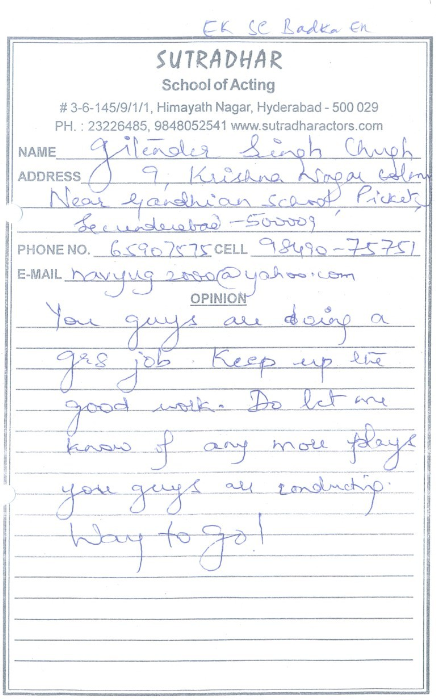 EK SE Badka Ek
SUTRADHAR
School of Acting
# 3-6-145/9/1/1, Himayath Nagar, Hyderabad - 500 029
PH. : 23226485, 9848052541 www.sutradharactors.com
NAME Jitender Singh Chugh
ADDRESS 9, Krishna Nagar Colony
Near Gandhian School, Picket,
Secunderabad - 500009
PHONE NO. 65907575 CELL 98490-75751
E-MAIL navyug2000@yahoo.com
OPINION
You guys are doing a
gr8 job. Keep up the
good work. Do let me
know of any more plays
you guys are conducting.
Way to go!